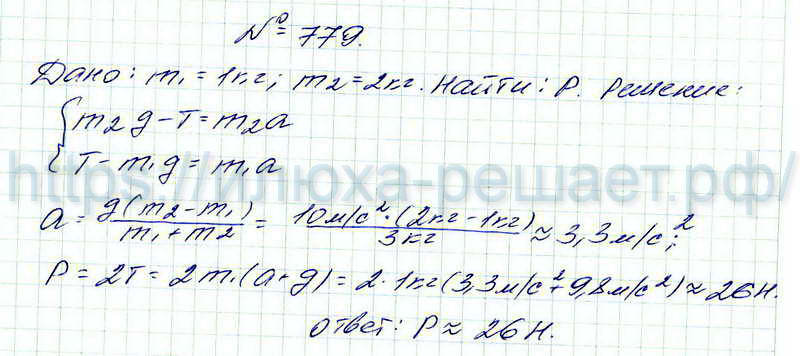 № 779.
Дано: m₁ = 1кг; m₂ = 2кг. Найти: P. Решение:
{ m₂g - T = m₂a
T - m₁g = m₁a
https://илюха-решает.рф/
a = g(m₂ - m₁) / (m₁ + m₂) = 10м/с² · (2кг - 1кг) / 3кг ≈ 3,3м/с²;
P = 2T = 2m₁(a + g) = 2 · 1кг(3,3м/с² + 9,8м/с²) ≈ 26Н.
Ответ: P ≈ 26Н.